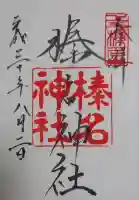 奉拝
榛名神社
榛名
神社
平成三十年八月二日